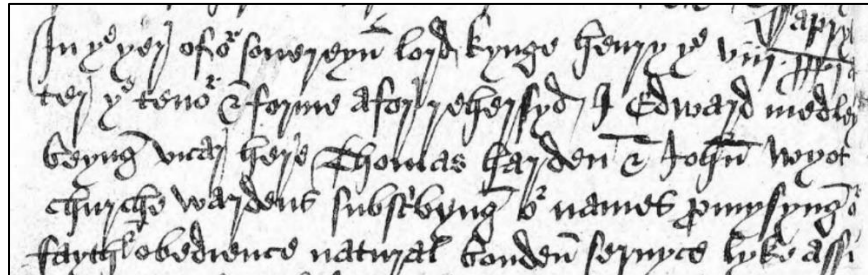 In yᵉ yer of oʳ sovereyn lord kynge henry yᵉ viii
ter yᵉ tenoʳ & forme afor rehersyd I Edward medley
beyng vicar here Thomas harden & John wyot
churche wardens subscᵇbyng oʳ names pmysyng
fayth obedience natural bonden servyce lyke assi